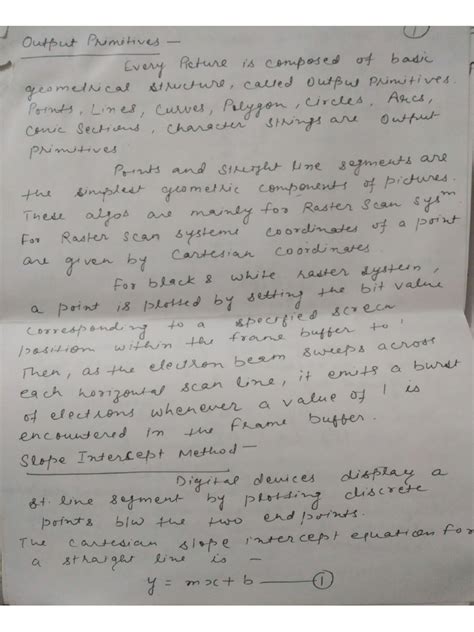 ①
Output Primitives —
Every Picture is composed of basic
geometrical structure, called Output Primitives.
Points, Lines, Curves, Polygon, Circles, Arcs,
Conic Sections, Character Strings are Output
Primitives.
Points and Straight line segments are
the simplest geometric components of pictures.
These algos are mainly for Raster Scan sysm
For Raster Scan systems coordinates of a point
are given by Cartesian Coordinates.
For black & white raster system,
a point is plotted by setting the bit value
corresponding to a specified screen
position within the frame buffer to 1
Then, as the electron beam sweeps across
each horizontal scan line, it emits a burst
of electrons whenever a value of 1 is
encountered in the frame buffer.
Slope Intercept Method —
Digital devices display a
st. line segment by plotting discrete
points b/w the two endpoints.
The Cartesian slope intercept equation for
a straight line is —
y = mx + b —— ①